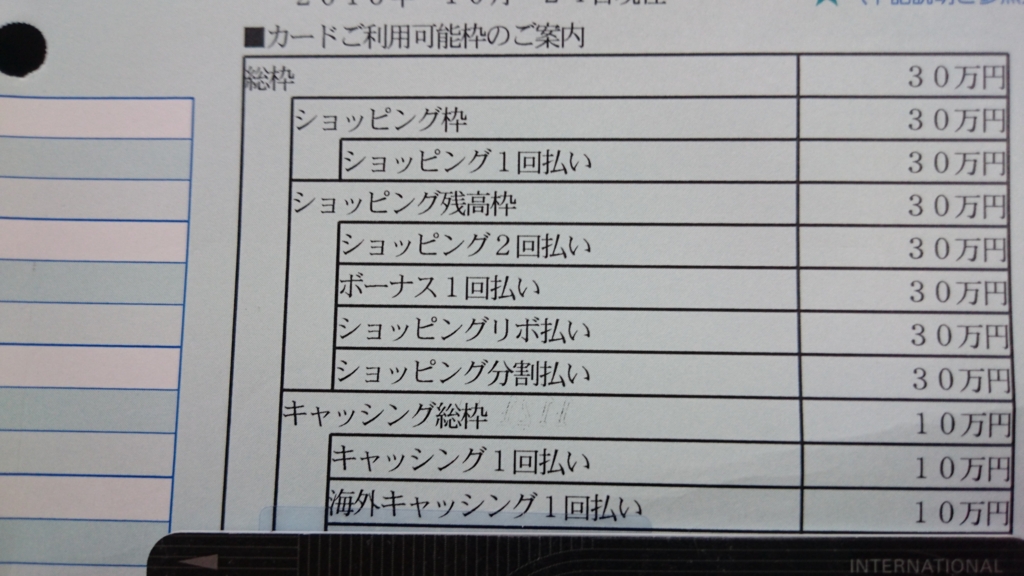 ■カードご利用可能枠のご案内
総枠 30万円
ショッピング枠 30万円
ショッピング1回払い 30万円
ショッピング残高枠 30万円
ショッピング2回払い 30万円
ボーナス1回払い 30万円
ショッピングリボ払い 30万円
ショッピング分割払い 30万円
キャッシング総枠 10万円
キャッシング1回払い 10万円
海外キャッシング1回払い 10万円
INTERNATIONAL